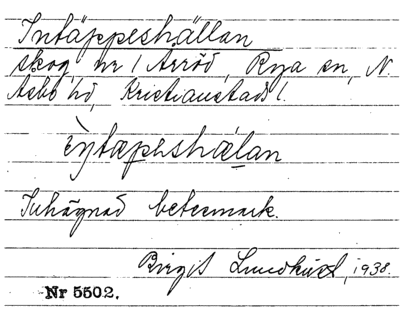 Intäppeshällan
skog, nr 1 Arröd, Rya sn, N.
Asbo hd, Kristianstads l.
Inhägnad betesmark.
Birgit Lundkvist, 1938.
Nr 5502.